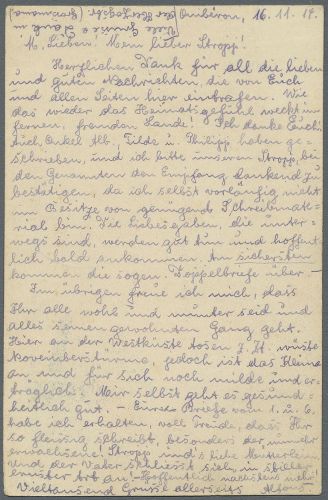 Viele Grüsse
Oubéron, 16.11.14.
M. Lieben! Mein lieber Stropp!
Herzlichen Dank für all die lieben
und guten Nachrichten, die von Euch
und allen Seiten hier eintrafen. Wie
das wieder das Heimatsgefühl weckt im
fernen, fremden Lande! Ich danke Euch.
Auch Onkel Alb., Tilde u. Philipp haben ge-
schrieben, und ich bitte unseren Stropp, bei
den Genannten den Empfang dankend zu
bestätigen, da ich selbst vorläufig nicht
im Besitze von genügend Schreibmate-
rial bin. Die Liebesgaben, die unter-
wegs sind, werden gut hin und hoffent-
lich bald ankommen. Am sichersten
kommen die sogen. Doppelbriefe über. –
Im übrigen freue ich mich, dass
Ihr alle wohl und munter seid und
alles seinen gewohnten Gang geht.
Hier an der Westküste tosen z. Zt. wüste
Novemberstürme, jedoch ist das Klima
an und für sich noch milde und er-
träglich. Mir selbst geht es gesund-
heitlich gut. – Eure Briefe vom 1. u. 6.
habe ich erhalten, voll Freude, dass Ihr
so fleissig schreibt, besonders der immer
erwachsene Stropp und s. liebe Mütterlein
und der Vater schliesst sich, in stiller
Art an! – Hoffentlich
Vieltausend Grüsse allerseits